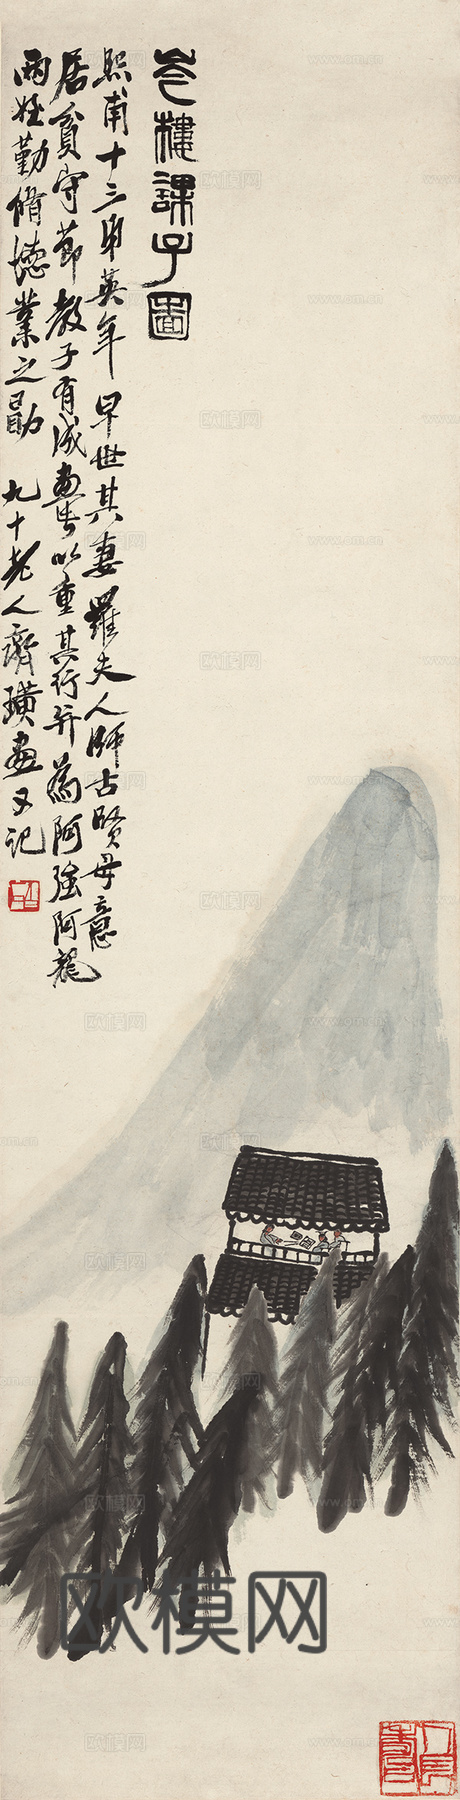 岑樓課子圖
熙甫十三弟英年早世其妻羅夫人師古賢母意
居貧守節教子有成畫此以重其行并為阿強阿龍
兩姪勤脩德業之勖 九十老人齊璜畫又記
欧模网
www.om.cn